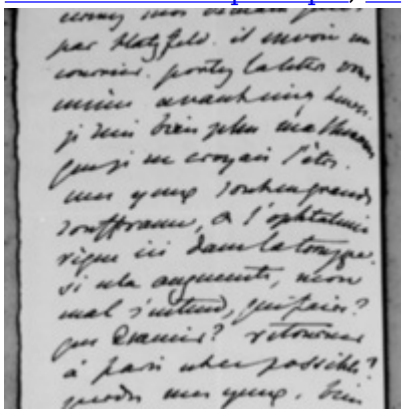 par Hatzfeld. il envoie un
courrier. portez la lettre vous
même avant cinq heures.
je suis bien plus malheureux
que je ne croyais l'être.
mes yeux sont en grande
souffrance, & l'ophtalmie
règne ici dans la troupe.
si cela augmente, mon
mal s'entend, que faire?
que devenir? retourner
à Paris est-ce possible?
perdre mes yeux. bien